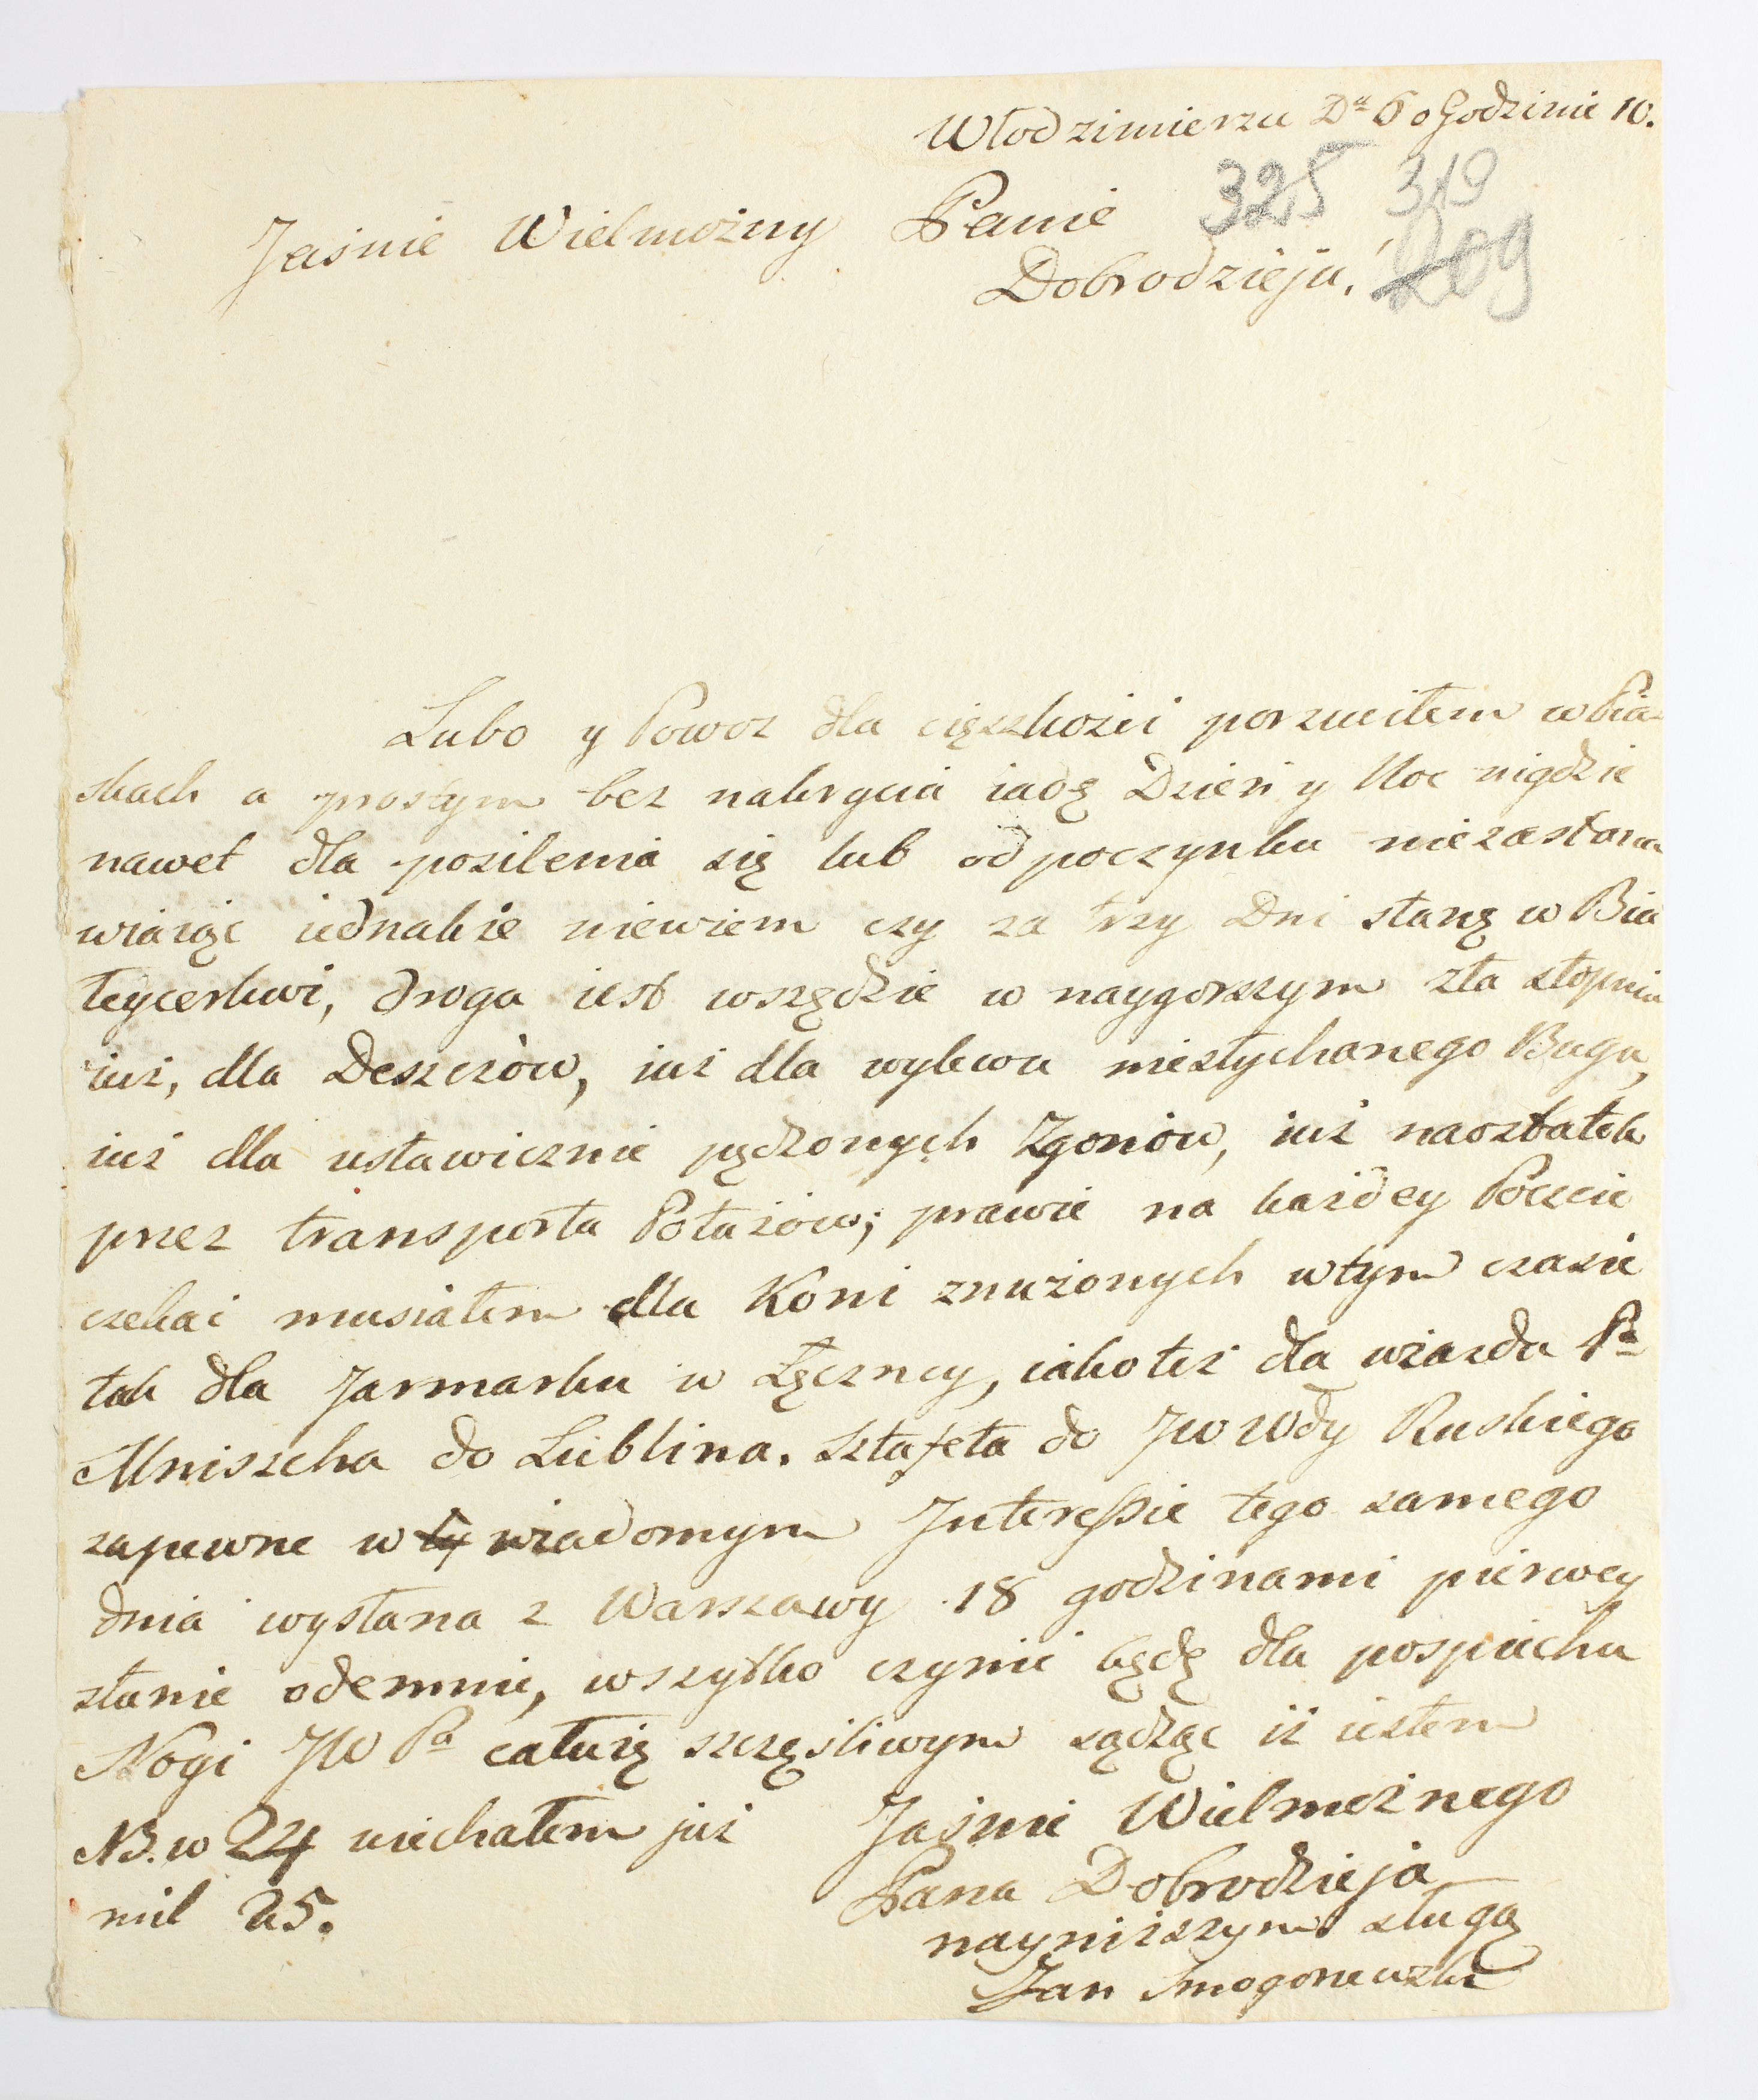 Włodzimierzu Dª 6 o Godzinie 10.
325 319
Jaśnie Wielmożny Panie
Dobrodzieju! 209
Lubo y Powoz dla cięszkości porzuciłem w Pia-
skach a prostym bez nakrycia iadę Dzień y Noc nigdzie
nawet dla posilenia się lub odpoczynku niezastana
wiaiąc iednakże niewiem czy za trzy Dni stanę w Bia
łeycerkwi, droga iest wszędzie w naygorszym zła stopniu
iuż, dla Deszczów, iuż dla wylewu niesłychanego Bugu,
iuż dla ustawicznie pędzonych Zgonów, iuż naostatek
przez transporta Potażów; prawie na każdey Poczcie
czekać musiałem dla Koni znużonych w tym czasie
tak dla Jarmarku w Łęczney, iako też dla wiazdu Pª
Mniszcha do Lublina. Sztafeta do JW Wdy Ruskiego
zapewne w wiadomym Interessie tego samego
dnia wysłana z Warszawy 18 godzinami pierwey
stanie odemnie, wszystko czynić będę dla pospiechu
Nogi JW Pª całuię szczęśliwym sądząc iż iestem
NB. w 24 uiechałem już Jaśnie Wielmożnego
mil 25. Pana Dobrodzieja
nayniższym sługą
Jan Smogorzewski